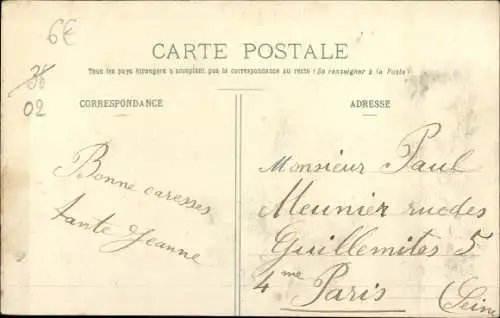 6€
36
02
CARTE POSTALE
Tous les pays étrangers n'acceptent pas la correspondance au recto (Se renseigner à la Poste)
CORRESPONDANCE
ADRESSE
Bonne caresses
tante Jeanne
Monsieur Paul
Meunier rue des
Guillemites 5
4me Paris (Seine